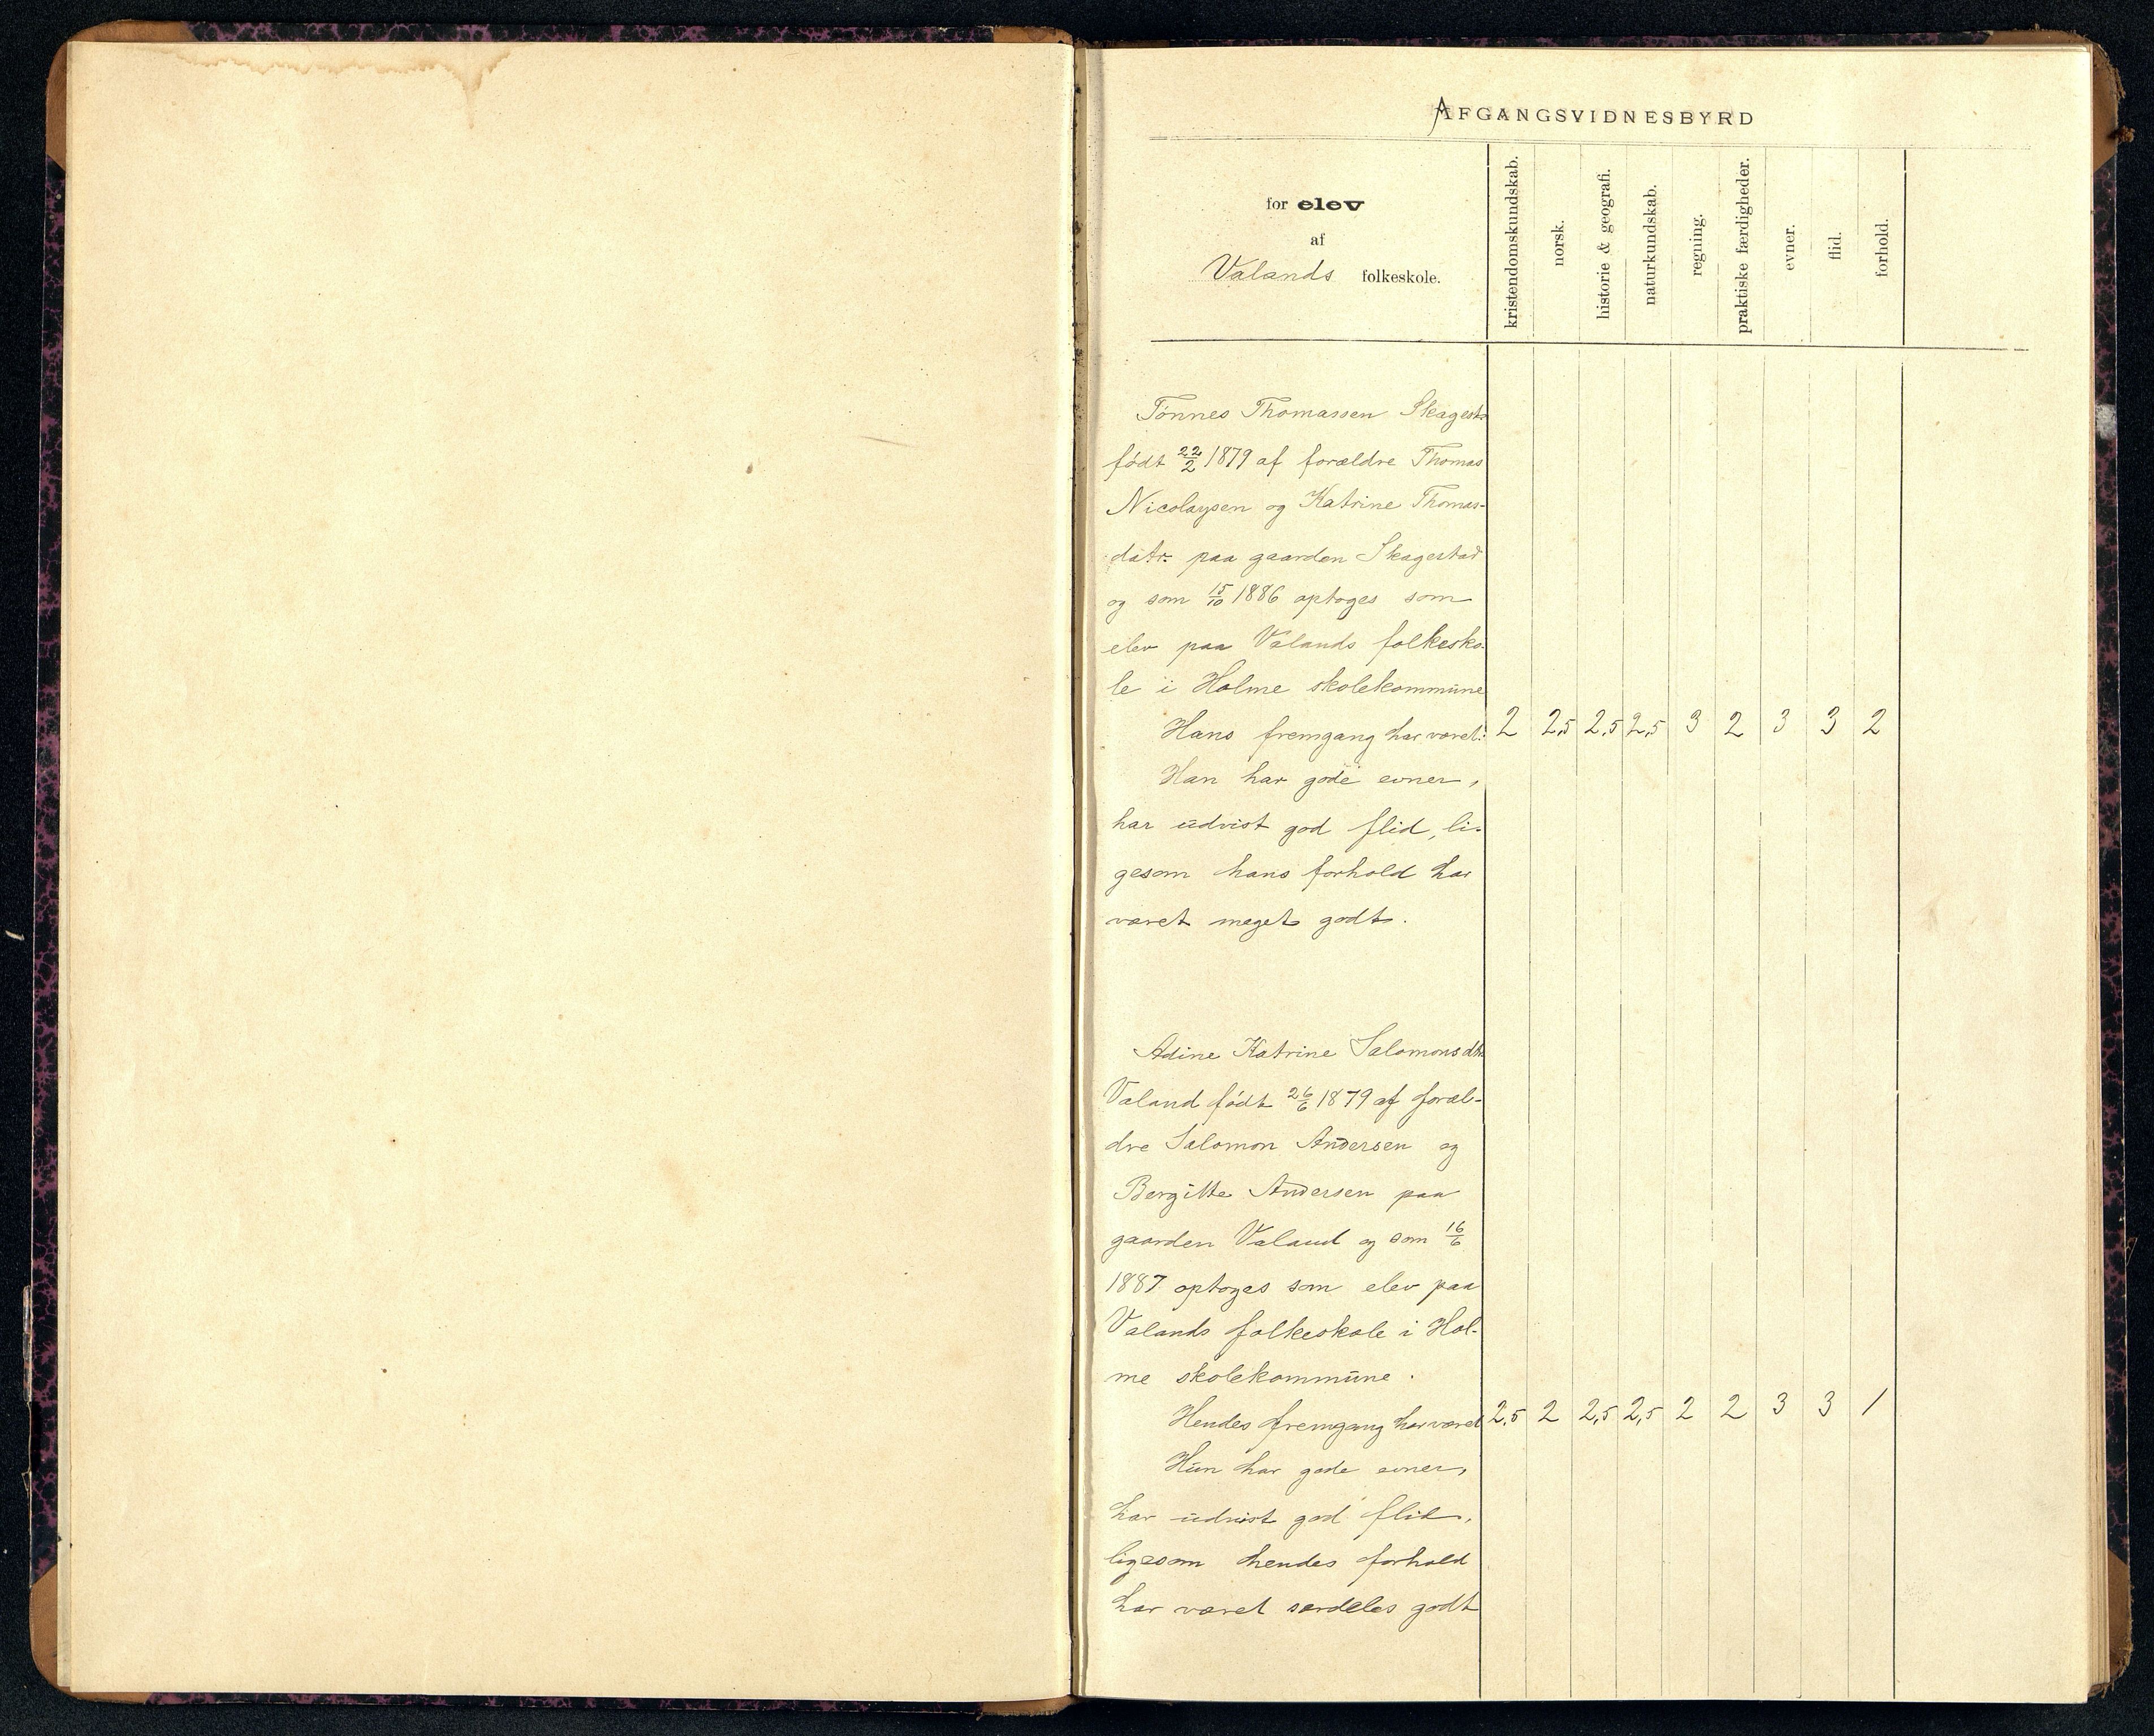 AFGANGSVIDNESBYRD
for elev
af
Valands folkeskole.
kristendomskundskab.
norsk.
historie & geografi.
naturkundskab.
regning.
praktiske færdigheder.
evner.
flid.
forhold.
Tönnes Thomassen Skagest.
födt 22/2 1879 af forældre Thomas
Nicolaysen og Katrine Thomas-
datr. paa gaarden Skagestad
og som 15/10 1886 optoges som
elev paa Valands folkesko-
le i Holme skolekommune
Hans fremgang har været: 2 2,5 2,5 2,5 3 2 3 3 2
Han har gode evner,
har udvist god flid, li-
gesom hans forhold har
været meget godt.
Adine Katrine Salomonsdtr
Valand födt 26/6 1879 af foræl-
dre Salomon Andersen og
Bergitte Andersen paa
gaarden Valand og som 16/6
1887 optoges som elev paa
Valands folkeskole i Hol-
me skolekommune.
Hendes fremgang har været 2,5 2 2,5 2,5 2 2 3 3 1
Hun har gode evner,
har udvist god flid,
ligesom hendes forhold
har været særdeles godt